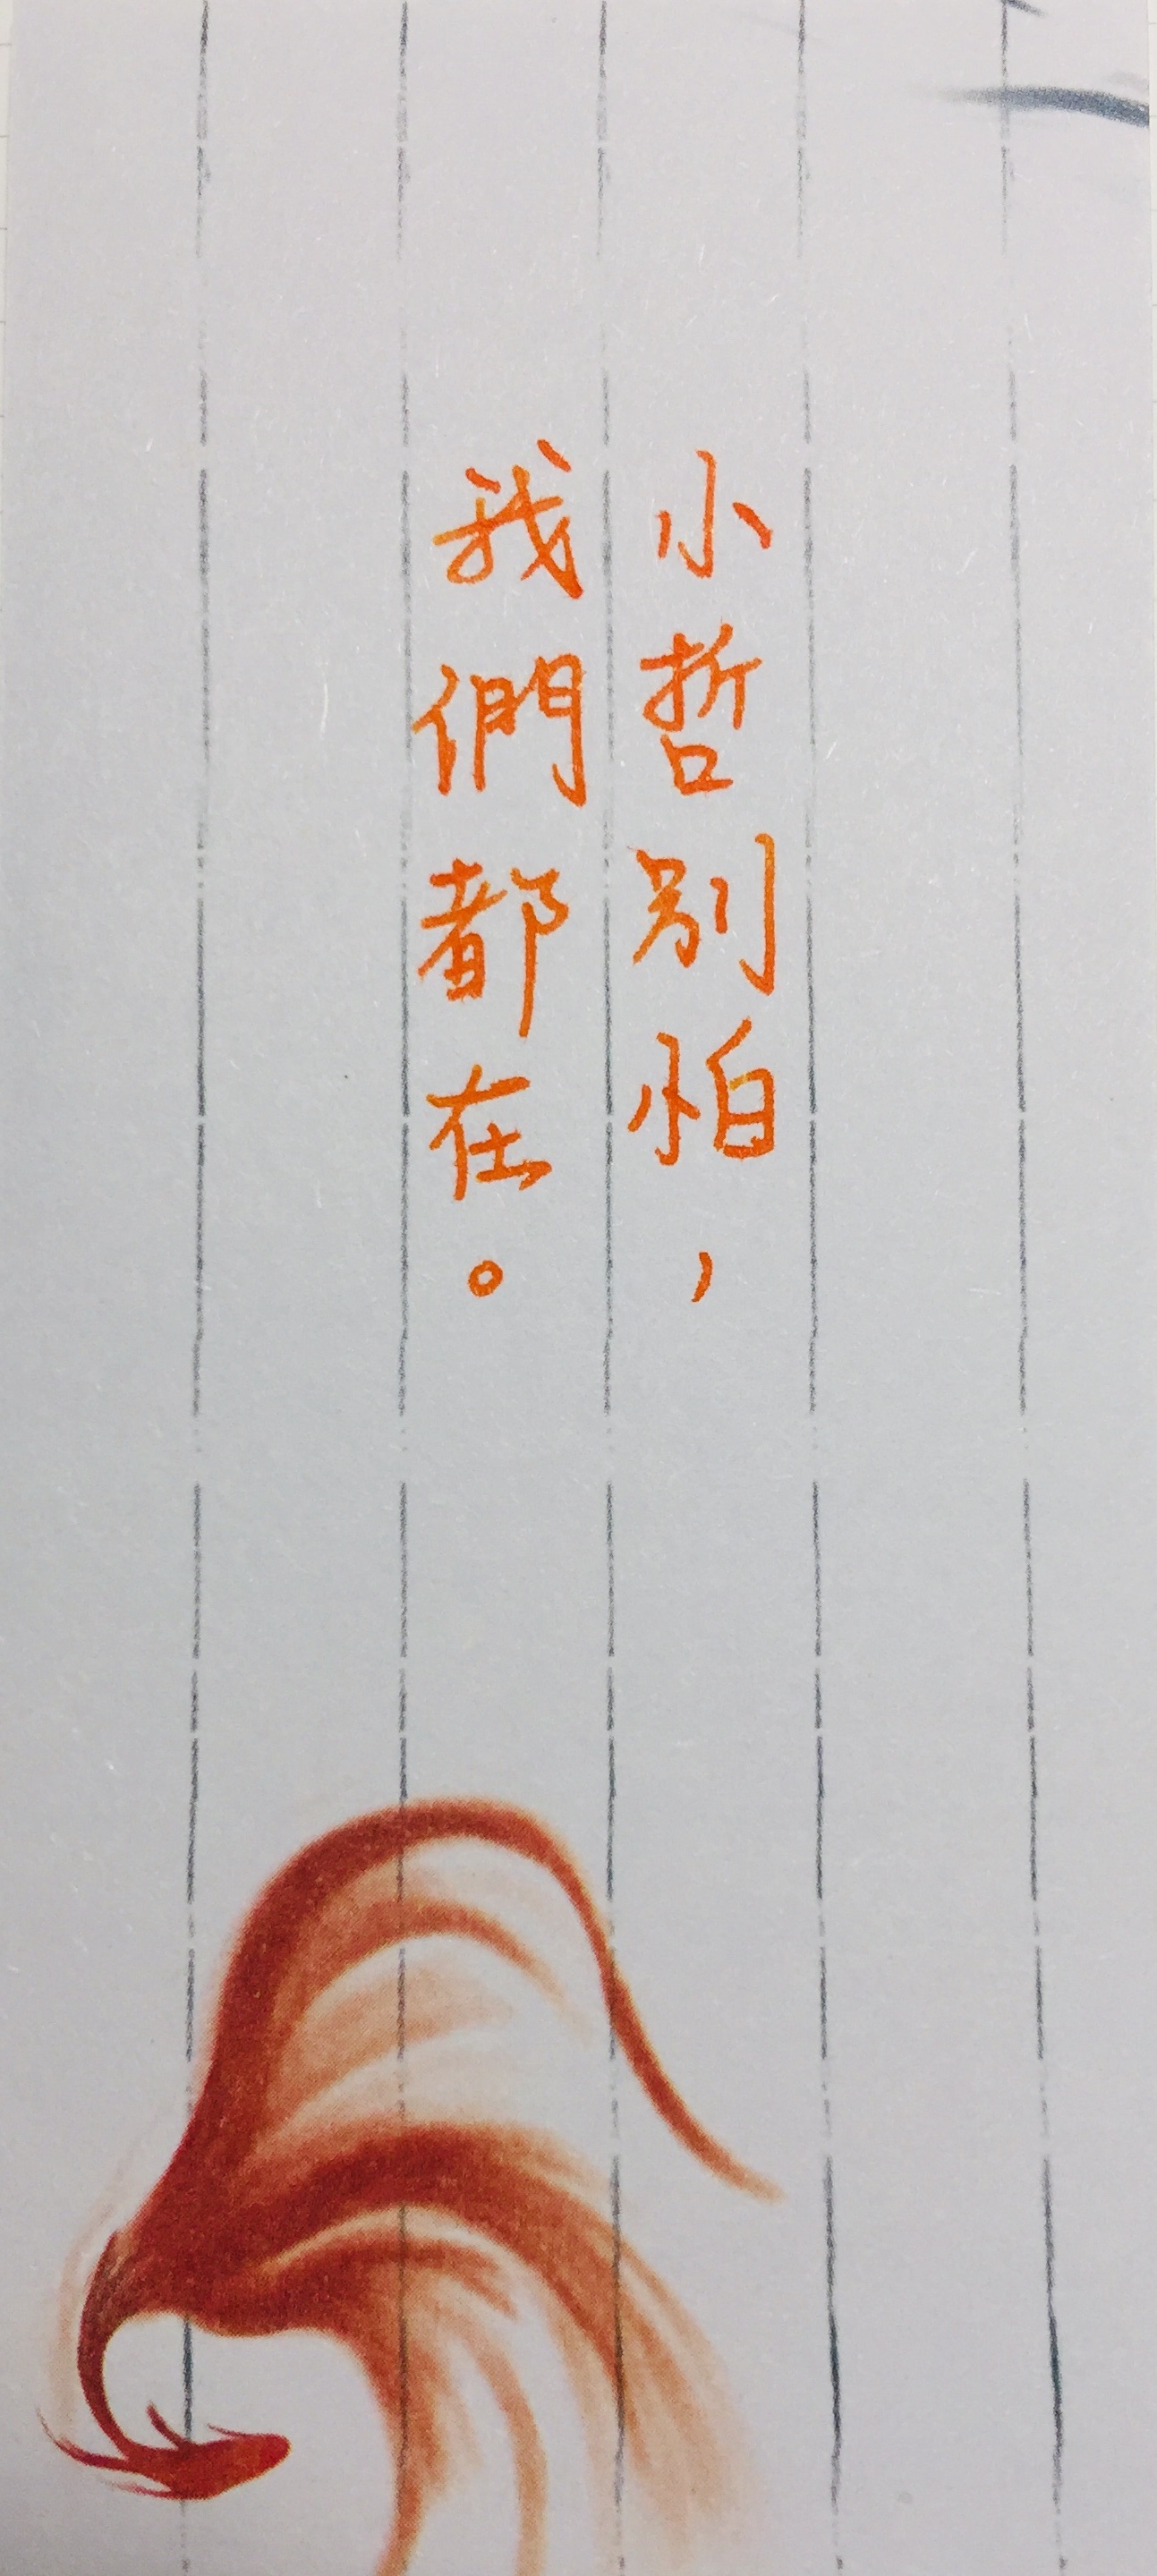 小哲別怕，
我們都在。